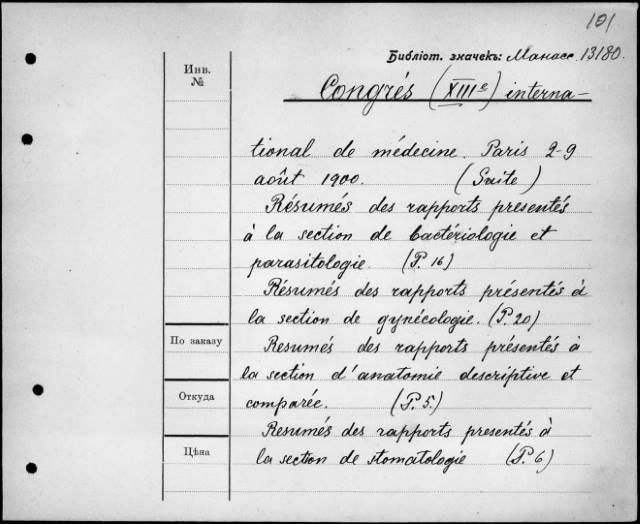 101
Библіот. значекъ: Манасс. 13180.
Инв.
№
Congrés (XIIIe) interna-
tional de médecine. Paris 2-9
août 1900. (Suite)
Résumés des rapports presentés
à la section de bactériologie et
parasitologie. (P. 16)
Résumés des rapports présentés à
la section de gynécologie. (P. 20)
По заказу
Resumés des rapports présentés à
la section d'anatomie descriptive et
Откуда
comparée. (P. 5.)
Resumés des rapports presentés à
Цѣна
la section de stomatologie (P. 6)